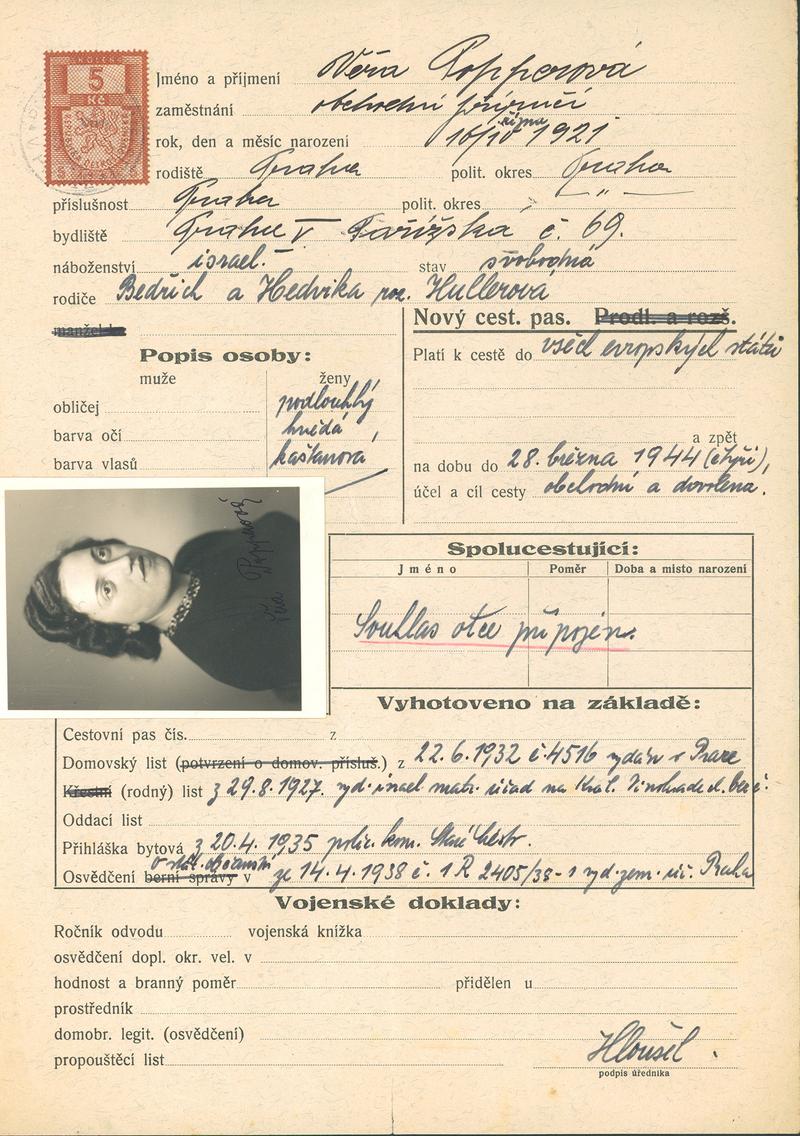 5
Kč
Jméno a příjmení Věra Popperová
zaměstnání obchodní příručí
rok, den a měsíc narození 10/IV října 1921
rodiště Praha polit. okres Praha
příslušnost Praha polit. okres — " —
bydliště Praha V Pařížská č. 69.
náboženství israel. stav svobodná
rodiče Bedřich a Hedvika roz. Hullerová
manželka
Nový cest. pas. Prodl. a rozš.
Platí k cestě do všech evropských států
a zpět
na dobu do 28. března 1944 (čtyři),
účel a cíl cesty obchodní a dovolena.
Popis osoby:
muže ženy
obličej podlouhlý
barva očí hnědá
barva vlasů kaštanová
Věra Popperová
Spolucestující:
Jméno Poměr Doba a místo narození
Souhlas otce připojen.
Vyhotoveno na základě:
Cestovní pas čís. z
Domovský list (potvrzení o domov. přísluš.) z 22.6.1932 č.4516 vydán v Praze
Křestní (rodný) list z 29.8.1927. vyd. israel matr. úřad na Král. Vinohradech
Oddací list
Přihláška bytová z 20.4.1935 polic. kom. Staré Město
o stát. občanství
Osvědčení berní správy v ze 14.4.1938 č. 1 R 2405/38-1 vyd. zem. úř. Praha
Vojenské doklady:
Ročník odvodu vojenská knížka
osvědčení dopl. okr. vel. v
hodnost a branný poměr přidělen u
prostředník
domobr. legit. (osvědčení)
propouštěcí list
Hloušel
podpis úředníka